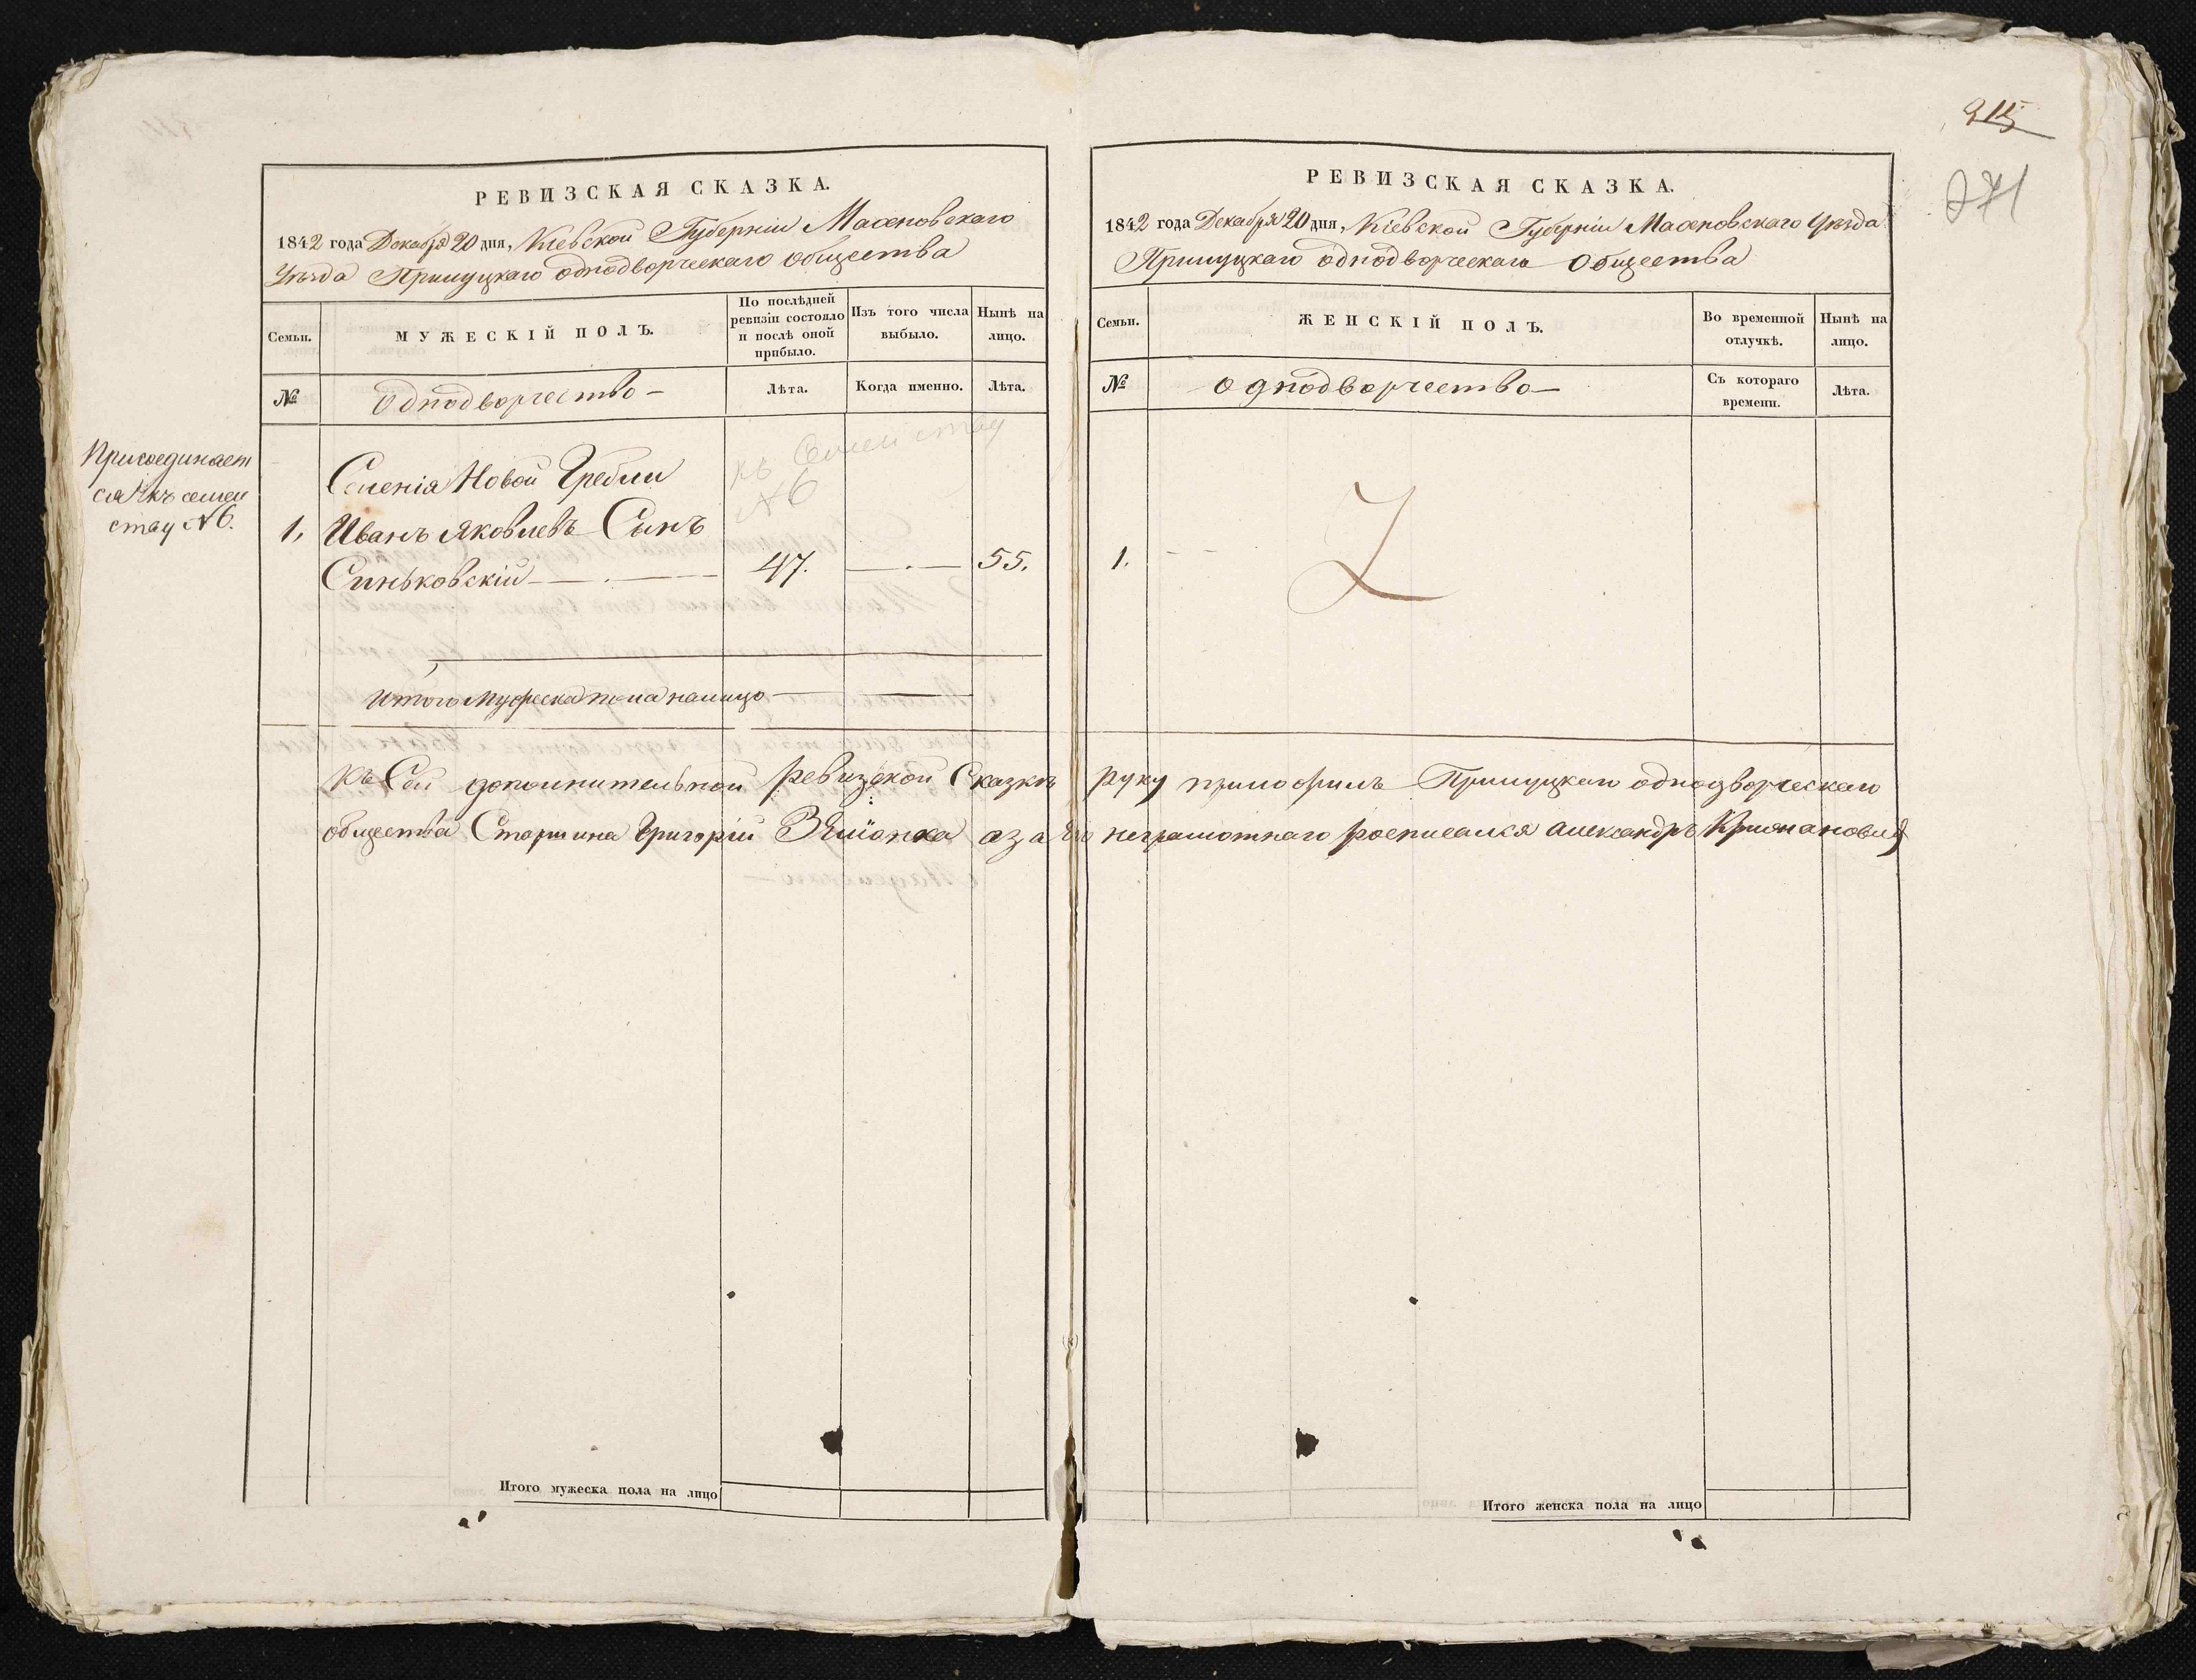 215
271
РЕВИЗСКАЯ СКАЗКА.
1842 года Декабря 20 дня, Киевской Губерніи Махновскаго
Уѣзда Прилуцкаго однодворческаго общества
Семьи.
МУЖЕСКІЙ ПОЛЪ.
По послѣдней ревизіи состояло и послѣ оной прибыло.
Изъ того числа выбыло.
Нынѣ на лицо.
№
Однодворчество —
Лѣта.
Когда именно.
Лѣта.
Присоединает
ся къ семей
ству №6.
къ Семейству
№6
Селенія Новой Гребли
1. Иванъ Яковлевъ Сынъ
Синьковскій — 47. — 55.
Итого мужеска пола налицо
РЕВИЗСКАЯ СКАЗКА.
1842 года Декабря 20 дня, Кіевской Губерніи Махновскаго Уѣзда
Прилуцкаго однодворческаго Общества
Семьи.
ЖЕНСКІЙ ПОЛЪ.
Во временной отлучкѣ.
Нынѣ на лицо.
№
однодворчество —
Съ котораго времени.
Лѣта.
1.
къ Сей дополнительной ревизской Сказкѣ руку приложилъ Прилуцкаго однодворческаго
общества Старшина Григорій а за Его неграмотнаго росписался Александръ
Итого мужеска пола на лицо
Итого женска пола на лицо